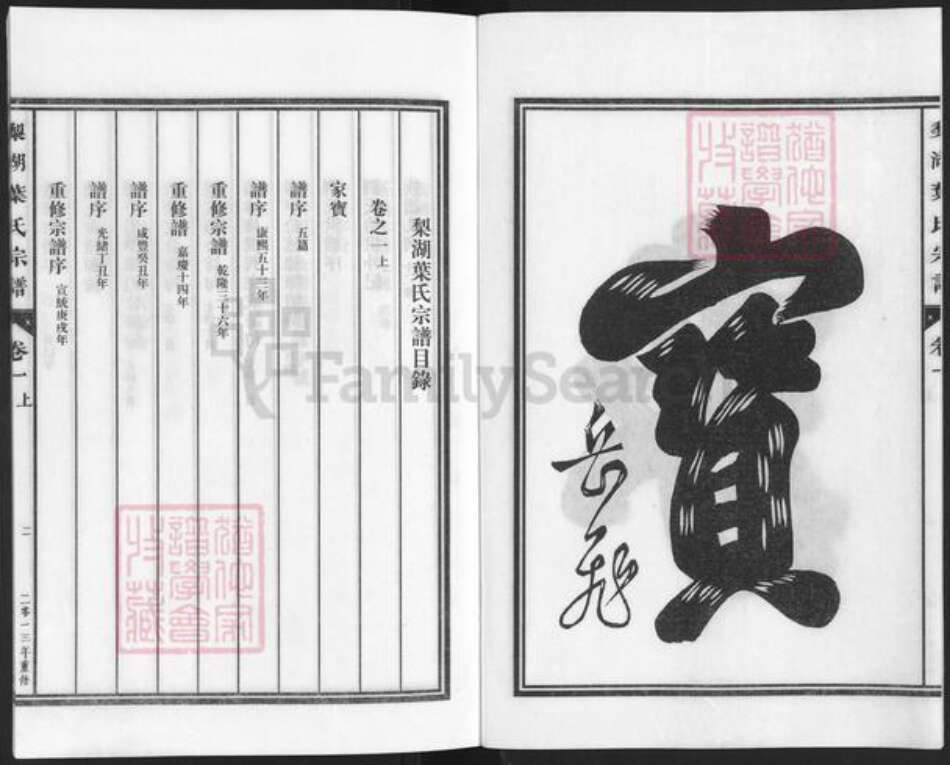 梨湖葉氏宗譜 卷一
寳
岳飛
梨湖葉氏宗譜目錄
卷之一上
家寳
譜序 五篇
譜序 康熙五十二年
重修宗譜 乾隆三十六年
重修譜 嘉慶十四年
譜序 咸豐癸丑年
譜序 光緒丁丑年
重修宗譜序 宣統庚戌年
梨湖葉氏宗譜 卷一上 二 二零一三年重修
FamilySearch
譜學會